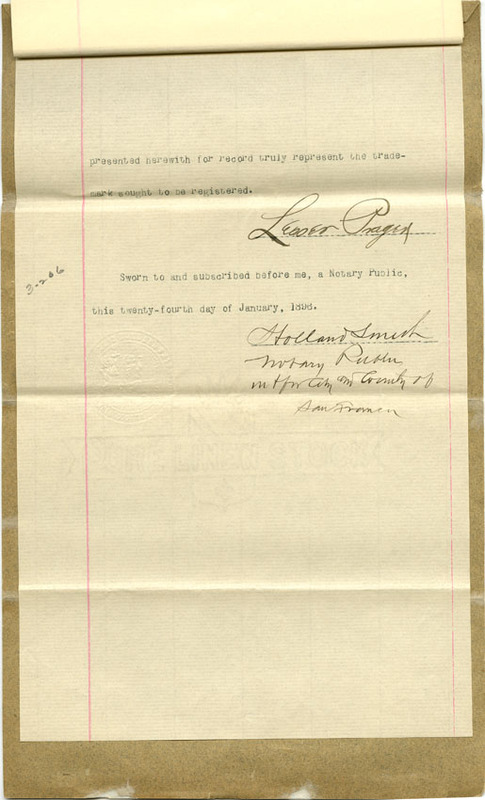 presented herewith for record truly represent the trade-
mark sought to be registered.
Lesser Prager
Sworn to and subscribed before me, a Notary Public,
3-206
this twenty-fourth day of January, 1898.
Holland Smith
Notary Public
in & for City and County of
San Francisco